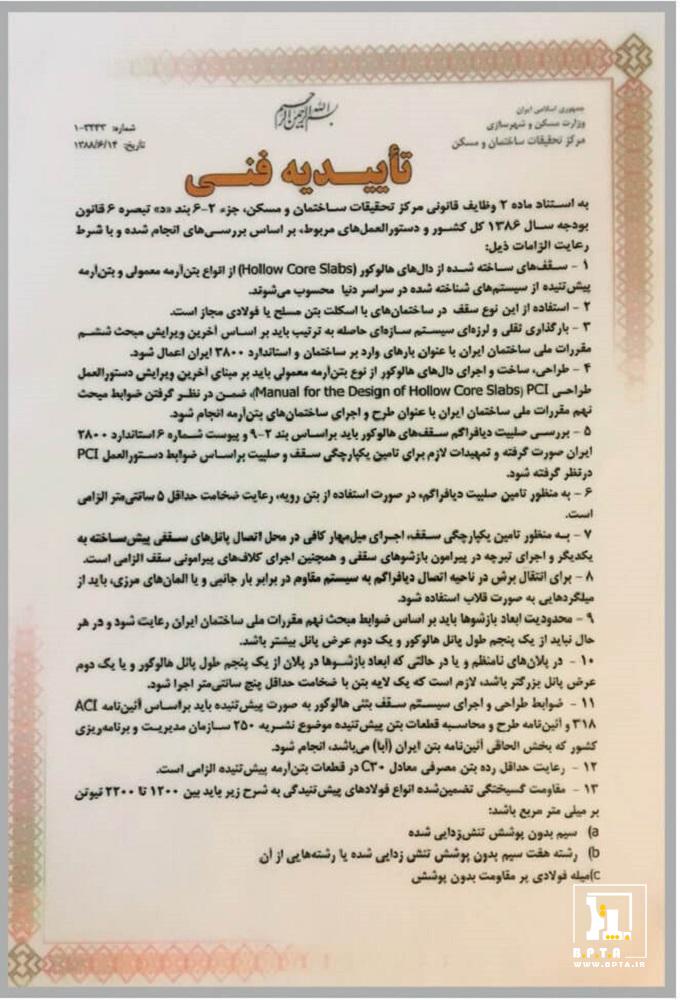 بسم الله الرحمن الرحیم
جمهوری اسلامی ایران
وزارت مسکن و شهرسازی
مرکز تحقیقات ساختمان و مسکن
شماره: ۳۲۴۳-۱
تاریخ: ۱۳۸۸/۶/۱۴
تأییدیه فنی
به استناد ماده ۲ وظایف قانونی مرکز تحقیقات ساختمان و مسکن، جزء ۲-۶ بند «د» تبصره ۶ قانون
بودجه سال ۱۳۸۶ کل کشور و دستورالعمل‌های مربوط، بر اساس بررسی‌های انجام شده و با شرط
رعایت الزامات ذیل:
۱ - سقف‌های ساخته شده از دال‌های هالوکور (Hollow Core Slabs) از انواع بتن‌آرمه معمولی و بتن‌آرمه
پیش‌تنیده از سیستم‌های شناخته شده در سراسر دنیا محسوب می‌شوند.
۲ - استفاده از این نوع سقف در ساختمان‌های با اسکلت بتن مسلح یا فولادی مجاز است.
۳ - بارگذاری ثقلی و لرزه‌ای سیستم سازه‌ای حاصله به ترتیب باید بر اساس آخرین ویرایش مبحث ششم
مقررات ملی ساختمان ایران با عنوان بارهای وارد بر ساختمان و استاندارد ۲۸۰۰ ایران اعمال شود.
۴ - طراحی، ساخت و اجرای دال‌های هالوکور از نوع بتن‌آرمه معمولی باید بر مبنای آخرین ویرایش دستورالعمل
طراحی PCI (Manual for the Design of Hollow Core Slabs)، ضمن در نظر گرفتن ضوابط مبحث
نهم مقررات ملی ساختمان ایران با عنوان طرح و اجرای ساختمان‌های بتن‌آرمه انجام شود.
۵ - بررسی صلبیت دیافراگم سقف‌های هالوکور باید براساس بند ۲-۹ و پیوست شماره ۶ استاندارد ۲۸۰۰
ایران صورت گرفته و تمهیدات لازم برای تامین یکپارچگی سقف و صلبیت براساس ضوابط دستورالعمل PCI
درنظر گرفته شود.
۶ - به منظور تامین صلبیت دیافراگم، در صورت استفاده از بتن رویه، رعایت ضخامت حداقل ۵ سانتی‌متر الزامی
است.
۷ - به منظور تامین یکپارچگی سقف، اجرای میل‌مهار کافی در محل اتصال پانل‌های سقفی پیش‌ساخته به
یکدیگر و اجرای تیرچه در پیرامون بازشوهای سقفی و همچنین اجرای کلاف‌های پیرامونی سقف الزامی است.
۸ - برای انتقال برش در ناحیه اتصال دیافراگم به سیستم مقاوم در برابر بار جانبی و یا المان‌های مرزی، باید از
میلگردهایی به صورت قلاب استفاده شود.
۹ - محدودیت ابعاد بازشوها باید بر اساس ضوابط مبحث نهم مقررات ملی ساختمان ایران رعایت شود و در هر
حال نباید از یک پنجم طول پانل هالوکور و یک دوم عرض پانل بیشتر باشد.
۱۰ - در پلان‌های نامنظم و یا در حالتی که ابعاد بازشوها در پلان از یک پنجم طول پانل هالوکور و یا یک دوم
عرض پانل بزرگتر باشد، لازم است که یک لایه بتن با ضخامت حداقل پنج سانتی‌متر اجرا شود.
۱۱ - ضوابط طراحی و اجرای سیستم سقف بتنی هالوکور به صورت پیش‌تنیده باید براساس آئین‌نامه ACI
۳۱۸ و آئین‌نامه طرح و محاسبه قطعات بتن پیش‌تنیده موضوع نشریه ۲۵۰ سازمان مدیریت و برنامه‌ریزی
کشور که بخش الحاقی آئین‌نامه بتن ایران (آبا) می‌باشد، انجام شود.
۱۲ - رعایت حداقل رده بتن مصرفی معادل C۳۰ در قطعات بتن‌آرمه پیش‌تنیده الزامی است.
۱۳ - مقاومت گسیختگی تضمین‌شده انواع فولادهای پیش‌تنیدگی به شرح زیر باید بین ۱۲۰۰ تا ۲۲۰۰ نیوتن
بر میلی متر مربع باشد:
a) سیم بدون پوشش تنش‌زدایی شده
b) رشته هفت سیم بدون پوشش تنش زدایی شده یا رشته‌هایی از آن
c) میله فولادی پر مقاومت بدون پوشش
BPTA
WWW.BPTA.IR